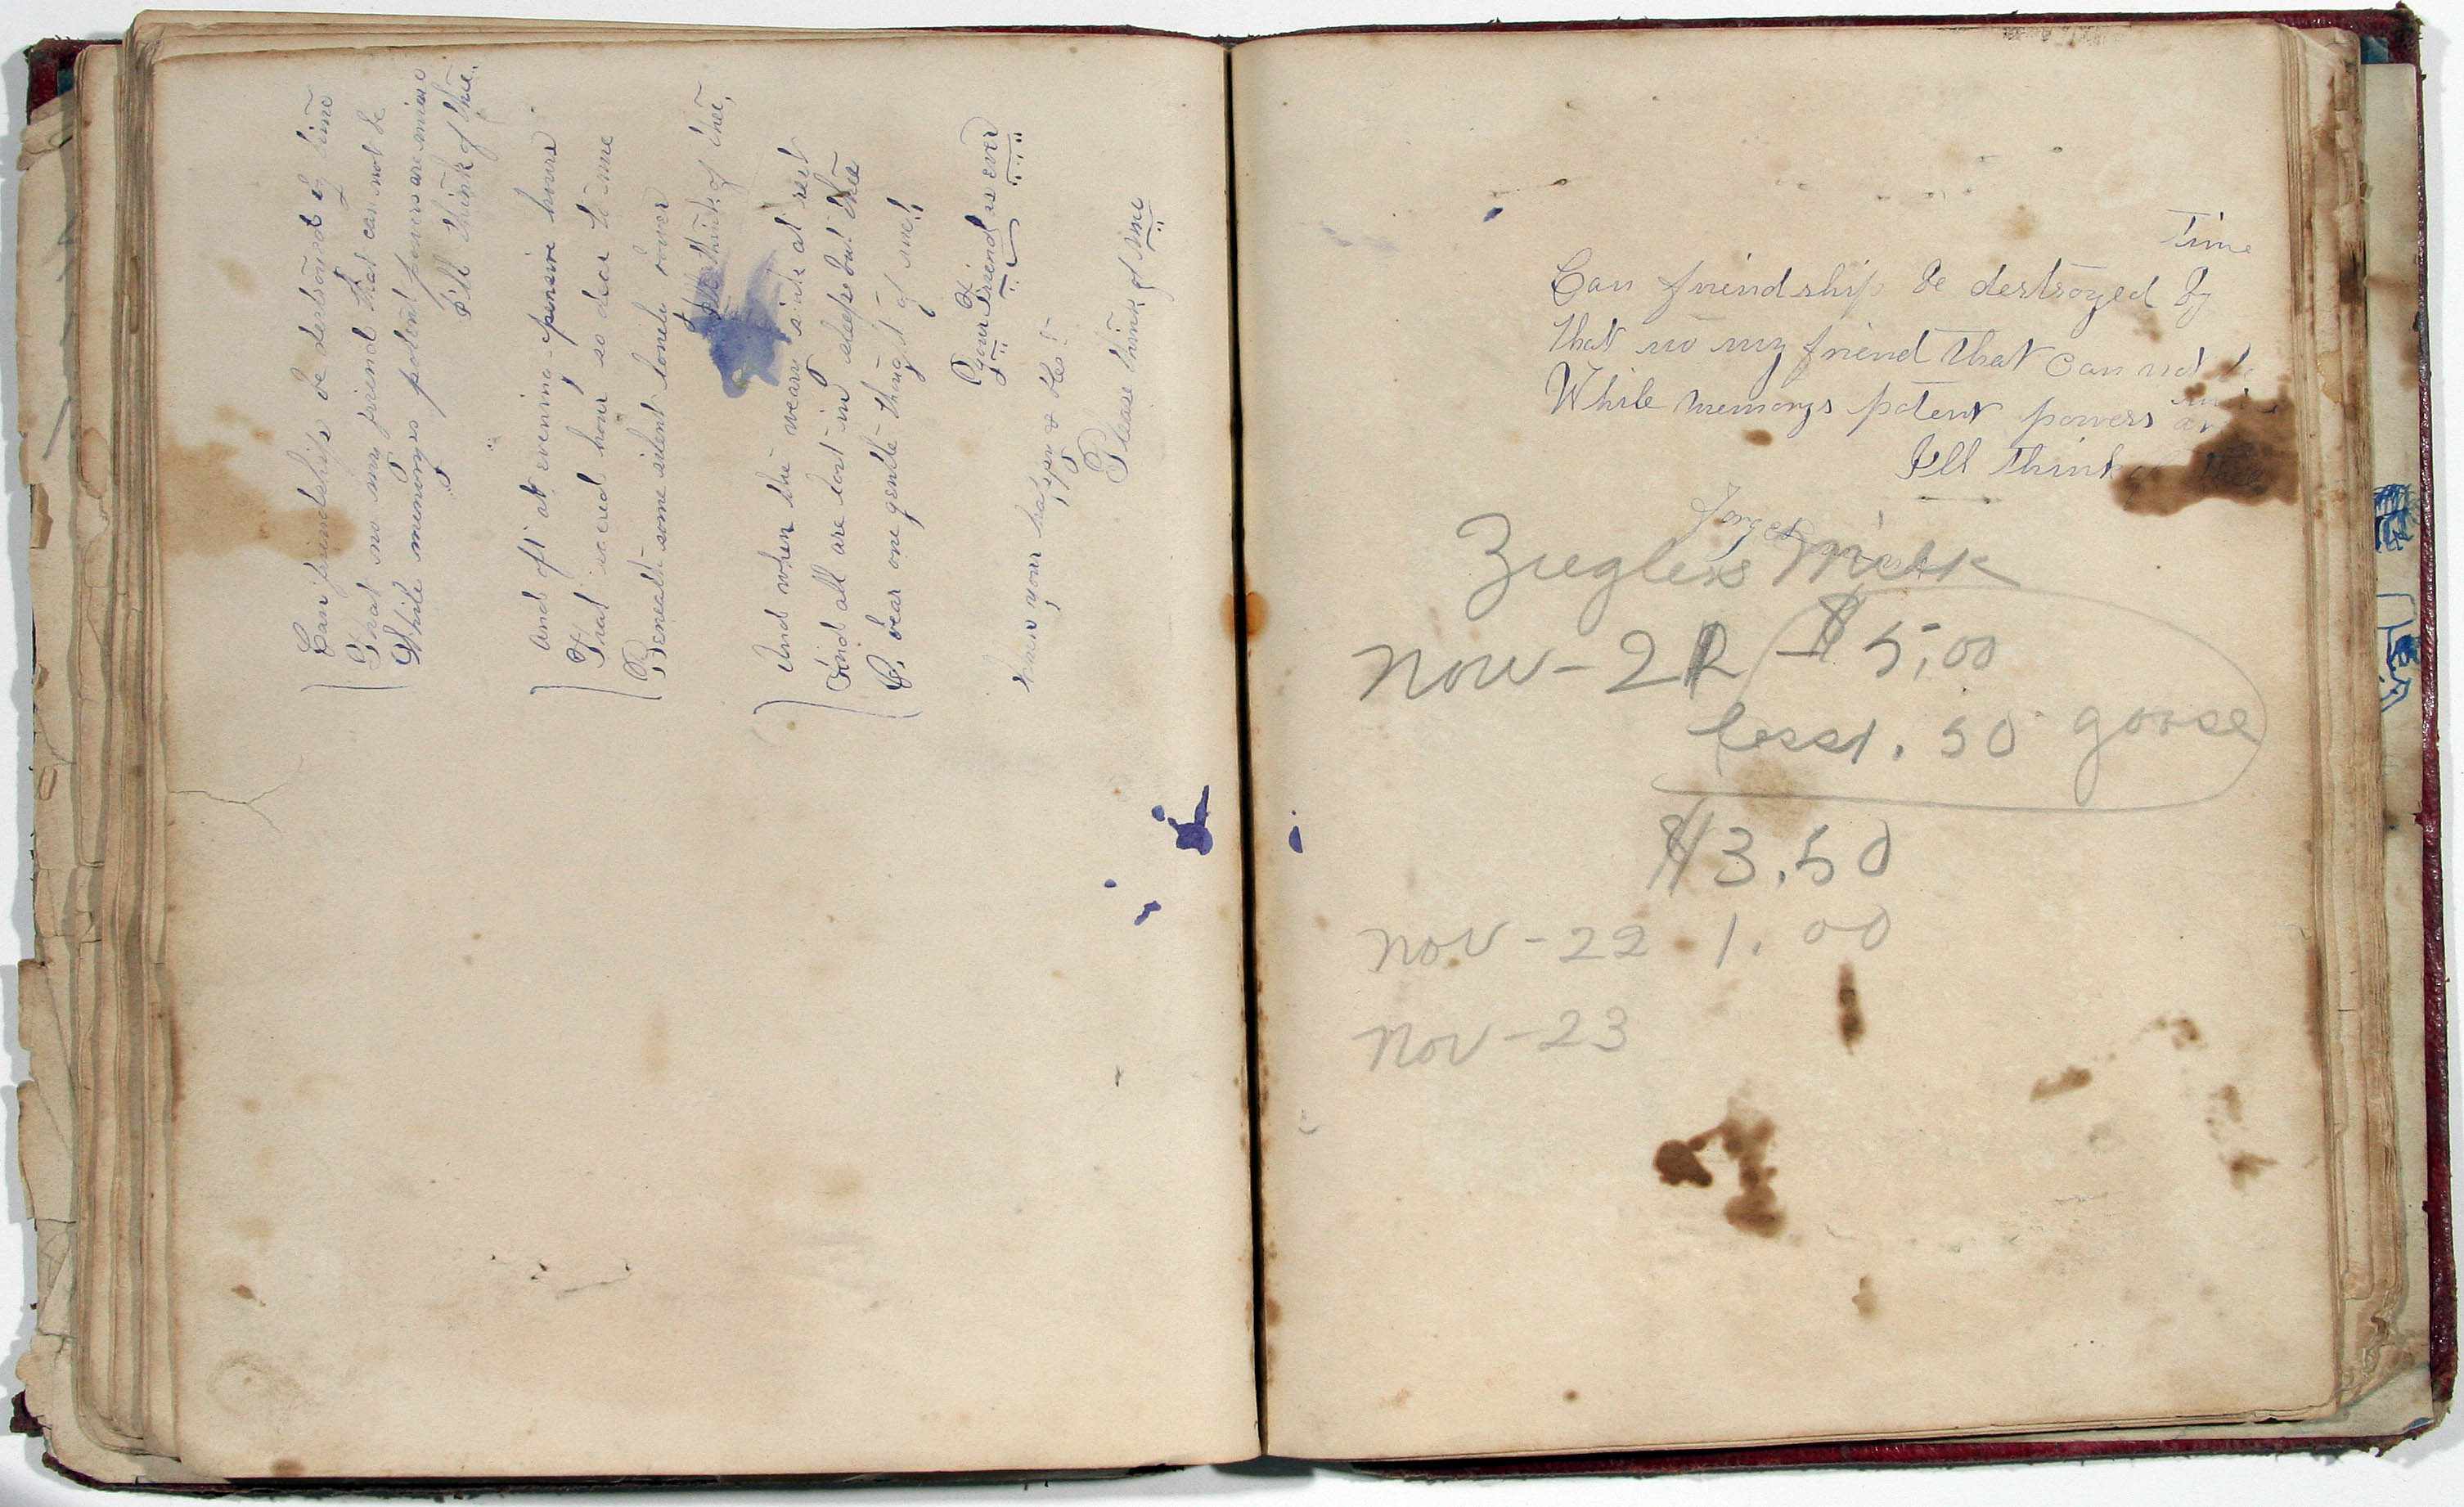 Can friendship be destroyed by time
That no my friend that can not be
While memorys potent powers are mine
I'll think of thee.
And oft at evening pensive hours
That sacred hour so dear to me
Beneath some silent lonely bower
think of thee,
And when the weary sink at rest
And all are lost in sleep but thee
O, bear one gentle thought of me!
Your Friend as ever
your
Please think of me
Time
Can friendship be destroyed by
That no my friend that can not be
While memorys potent powers ar
I'll think of thee
Forget
Zieglers Milk
Nov - 2 $5,00
less 1.50 goose
$3.50
Nov - 22 1.00
Nov - 23